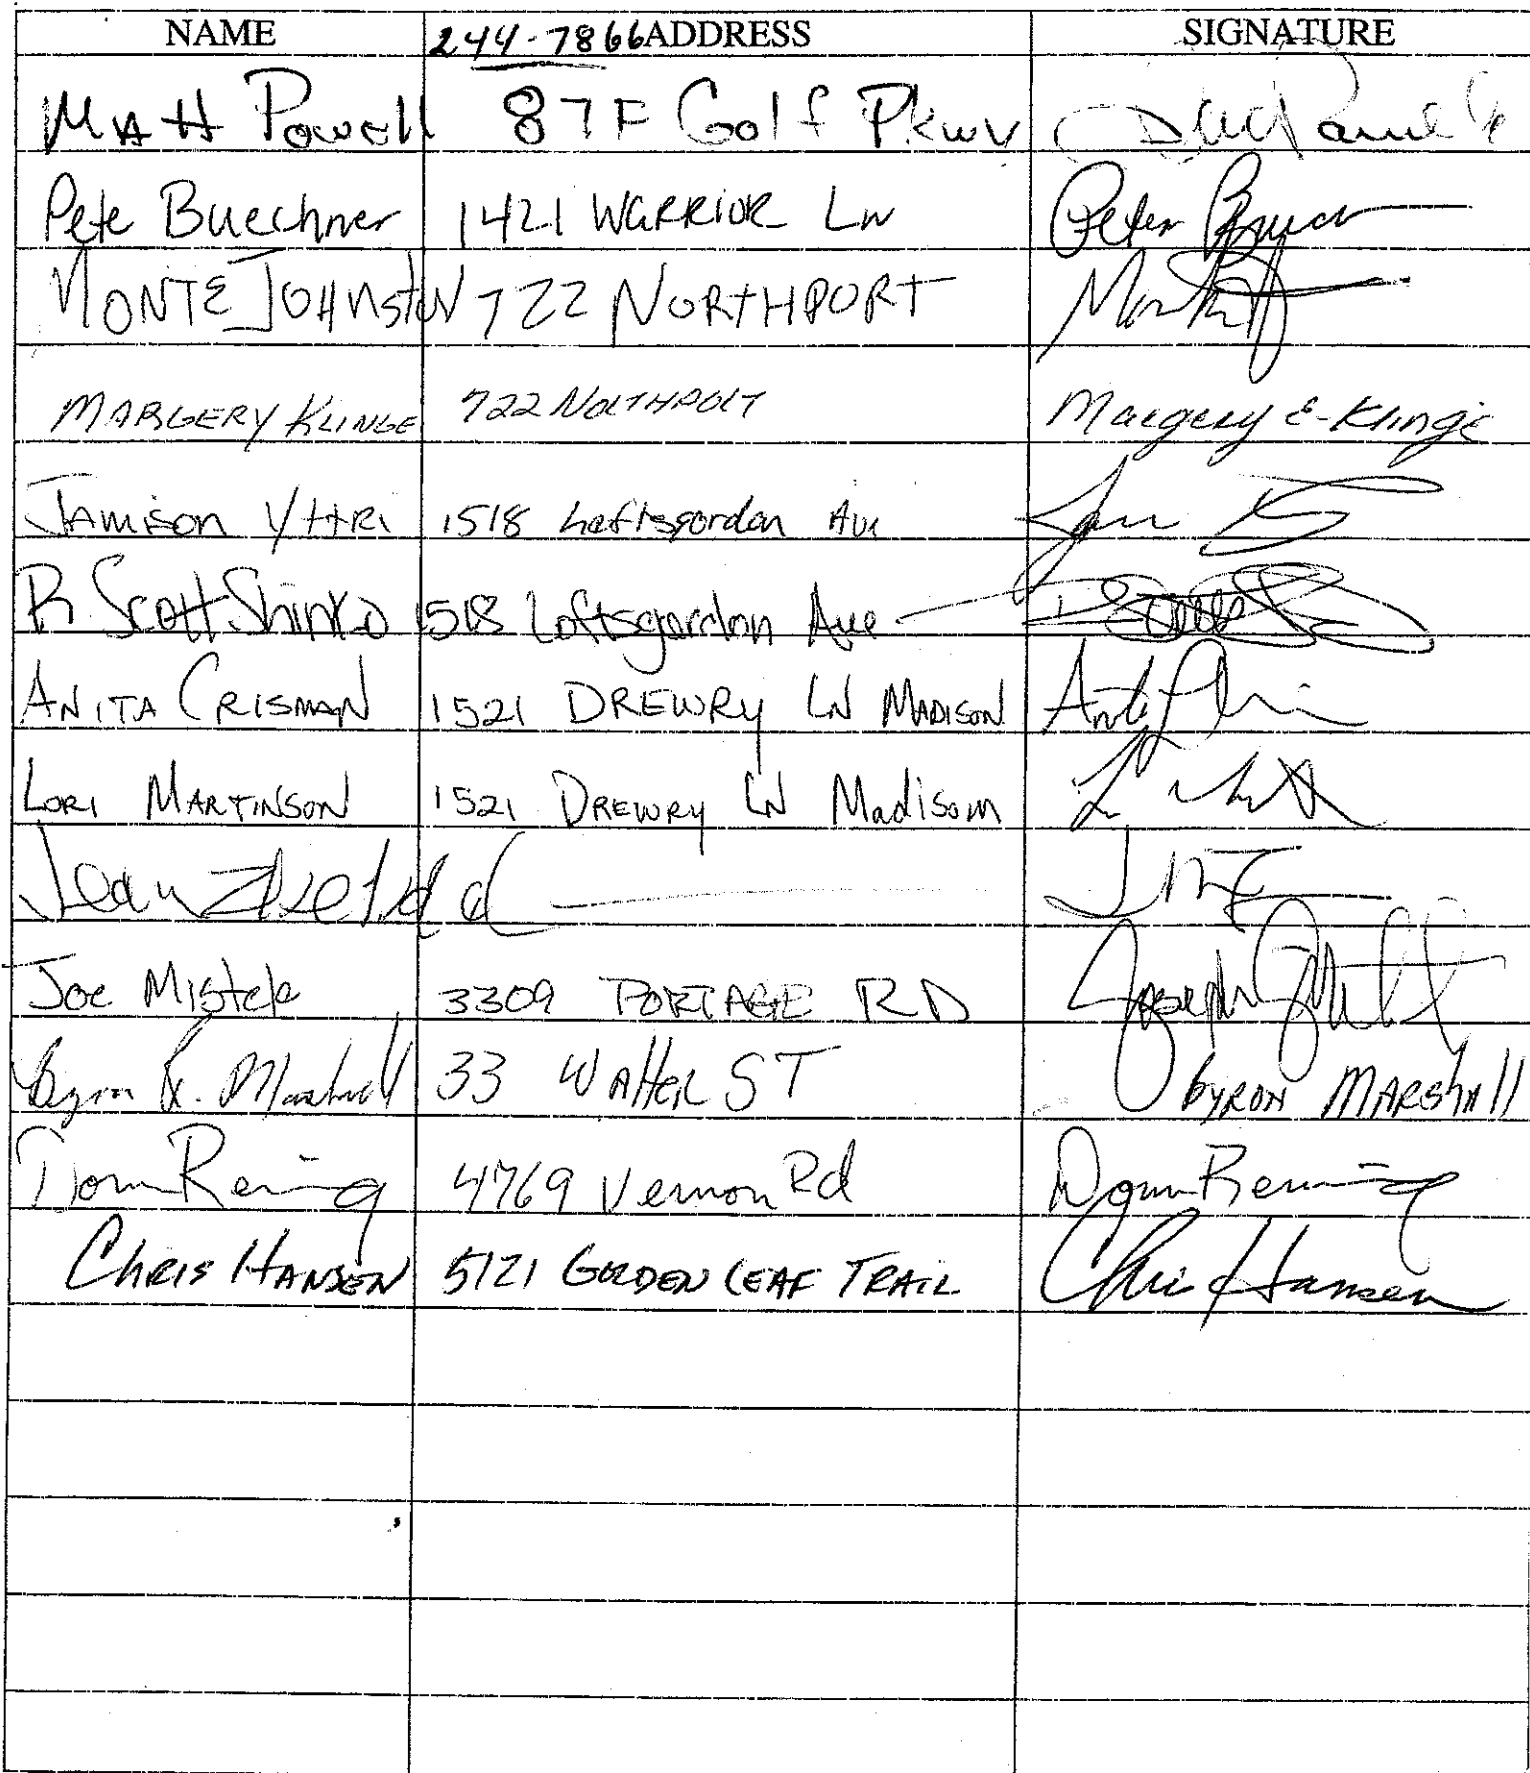 NAME 244-7866 ADDRESS SIGNATURE
Matt Powell 87F Golf Pkwy
Pete Buechner 1421 Warrior Ln Peter
Monte Johnston 722 Northport
Margery Klinge 722 Northport Margery E. Klinge
Jamison 1518 Loftsgordon Ave
R Scott Shinko 1518 Loftsgordon Ave
Anita Crisman 1521 Drewry Ln Madison
Lori Martinson 1521 Drewry Ln Madison
Jean
Joe Mistele 3309 Portage RD Joseph
Byron R. Marshall 33 Walter ST Byron Marshall
4769 Vernon Rd
Chris Hansen 5121 Golden Leaf Trail Chris Hansen